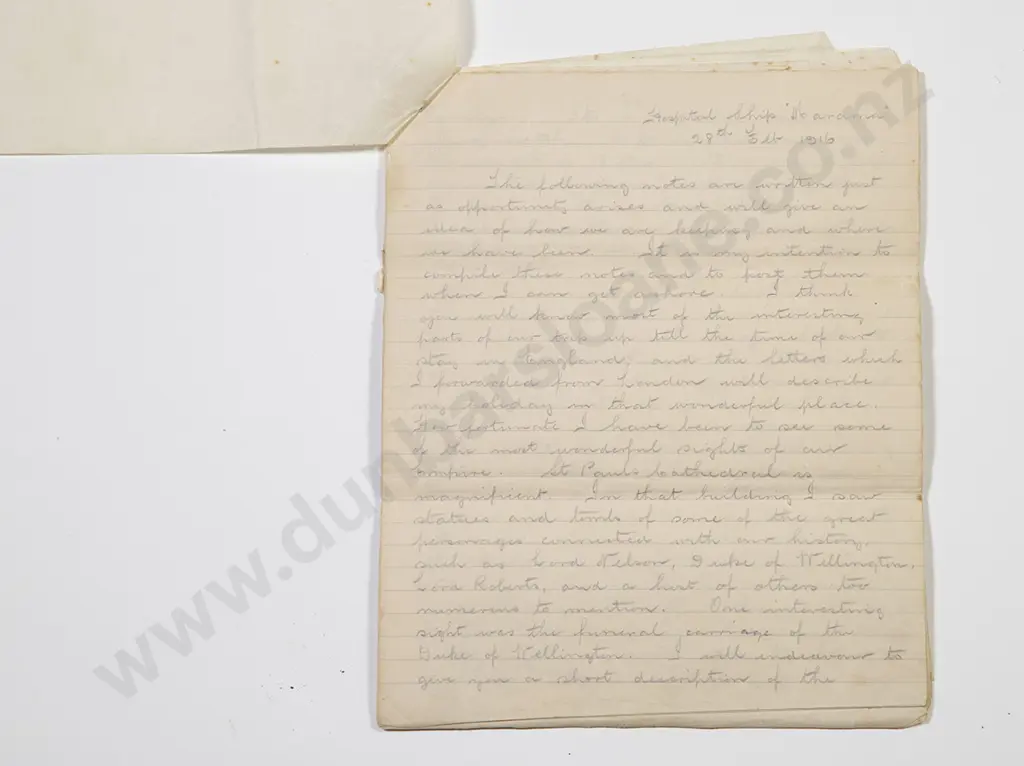 Hospital Ship "Marama"
28th Feb 1916
The following notes are written just
as opportunity arises and will give an
idea of how we are keeping and where
we have been. It is my intention to
compile these notes and to post them
when I can get ashore. I think
you will know most of the interesting
parts of our trip up till the time of our
stay in England, and the letters which
I forwarded from London will describe
my holiday in that wonderful place.
How fortunate I have been to see some
of the most wonderful sights of our
empire. St Pauls Cathedral is
magnificent. In that building I saw
statues and tombs of some of the great
personages connected with our history,
such as Lord Nelson, Duke of Wellington,
Lord Roberts, and a host of others too
numerous to mention. One interesting
sight was the funeral carriage of the
Duke of Wellington. I will endeavour to
give you a short description of the
www.dunbarsloane.co.nz